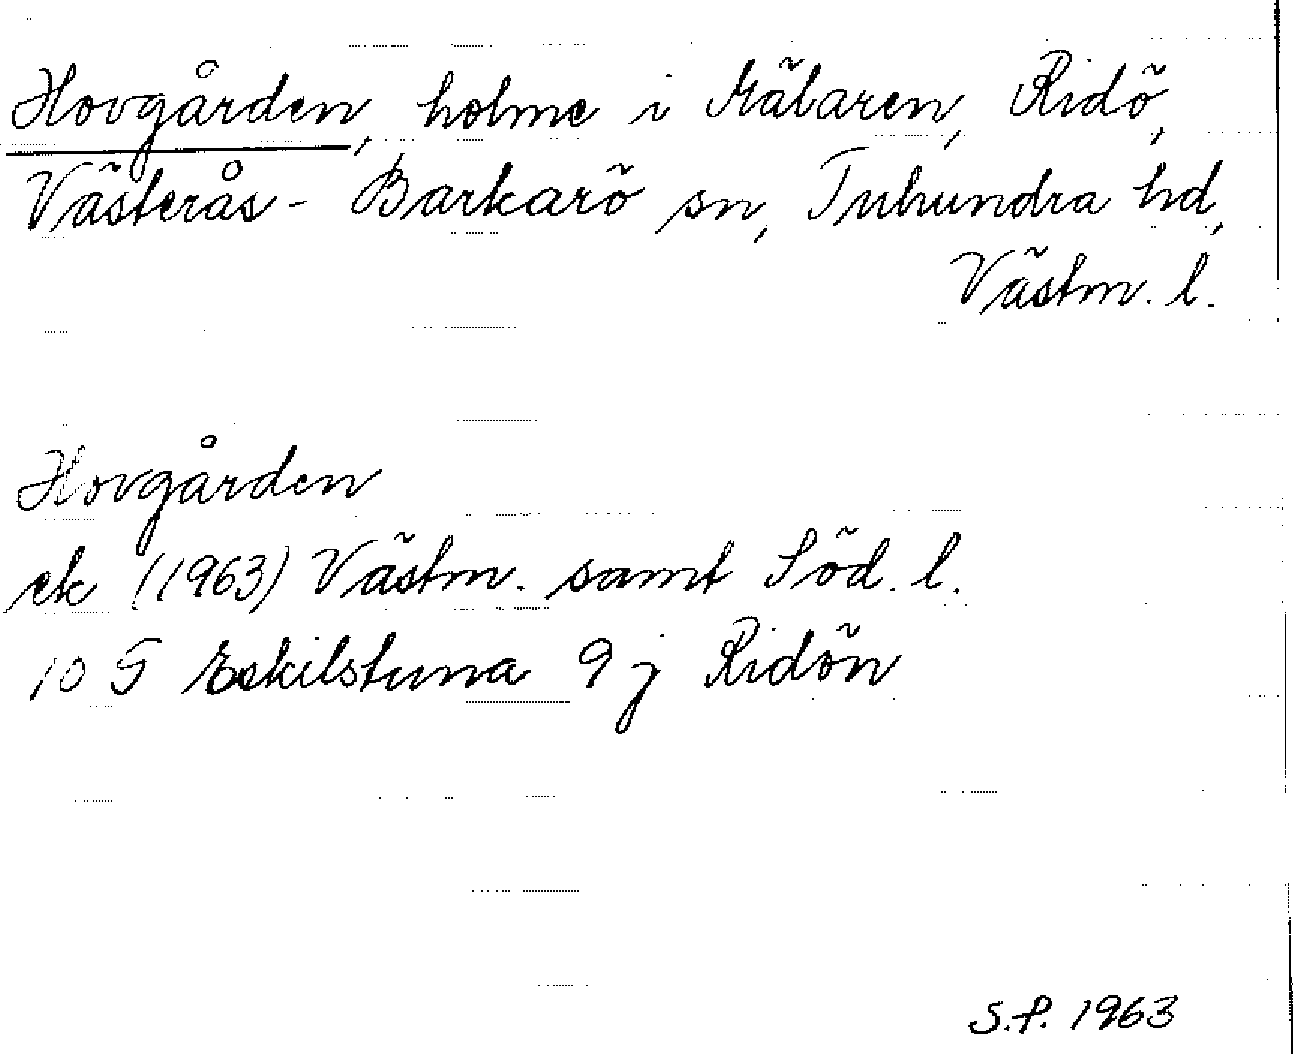 Hovgården, holme i Mälaren, Ridö,
Västerås-Barkarö sn, Tuhundra hd,
Västm. l.
Hovgården
ek (1963) Västm. samt Söd. l.
10 G Eskilstuna 9 j Ridön
S.P. 1963